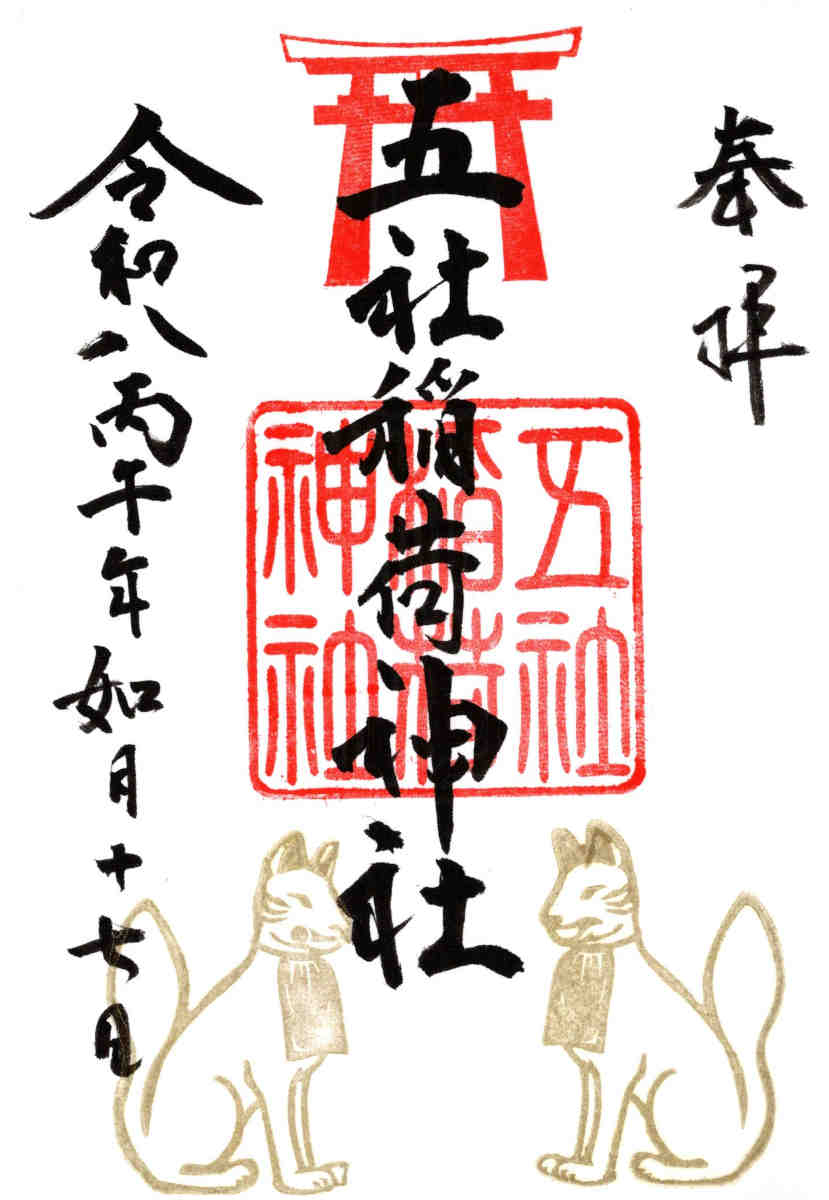 奉拝
五社稲荷神社
五社
稲荷
神社
令和八丙午年如月十七日